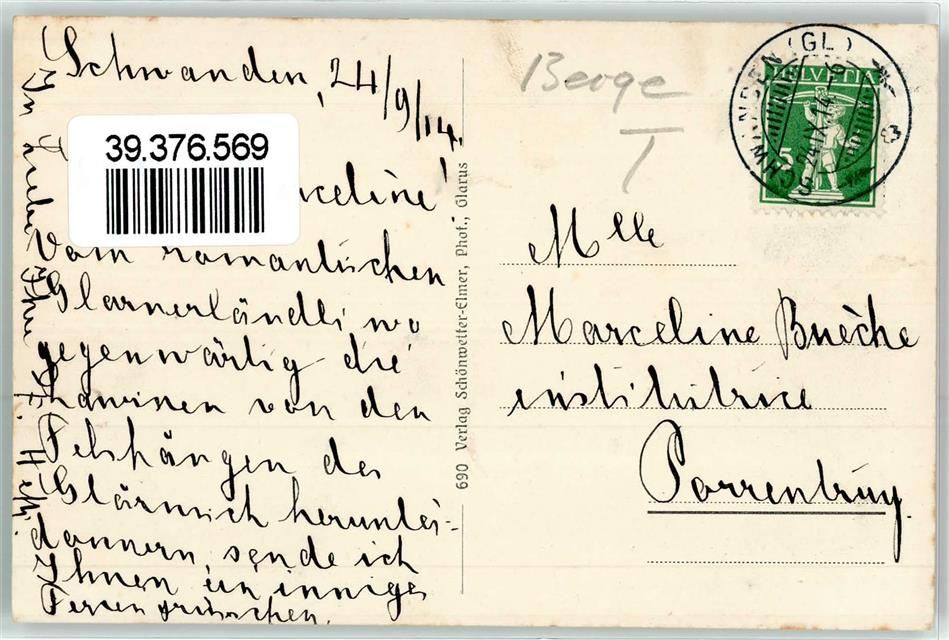 Schwanden, 24/9/14.
39.376.569
rceline!
Vom romantischen
Glarnerländli, wo
gegenwärtig die
Lawinen von den
Felshängen des
Glärnisch herunter-
donnern, sende ich
Ihnen ein inniges
Feriengrüsschen.
In Liebe Ihre
690 Verlag Schönwetter-Elmer, Phot., Glarus
Berge
T
SCHWANDEN (GL)
24.IX.14
HELVETIA
5
Mlle
Marceline Buèche
institutrice
Porrentruy.